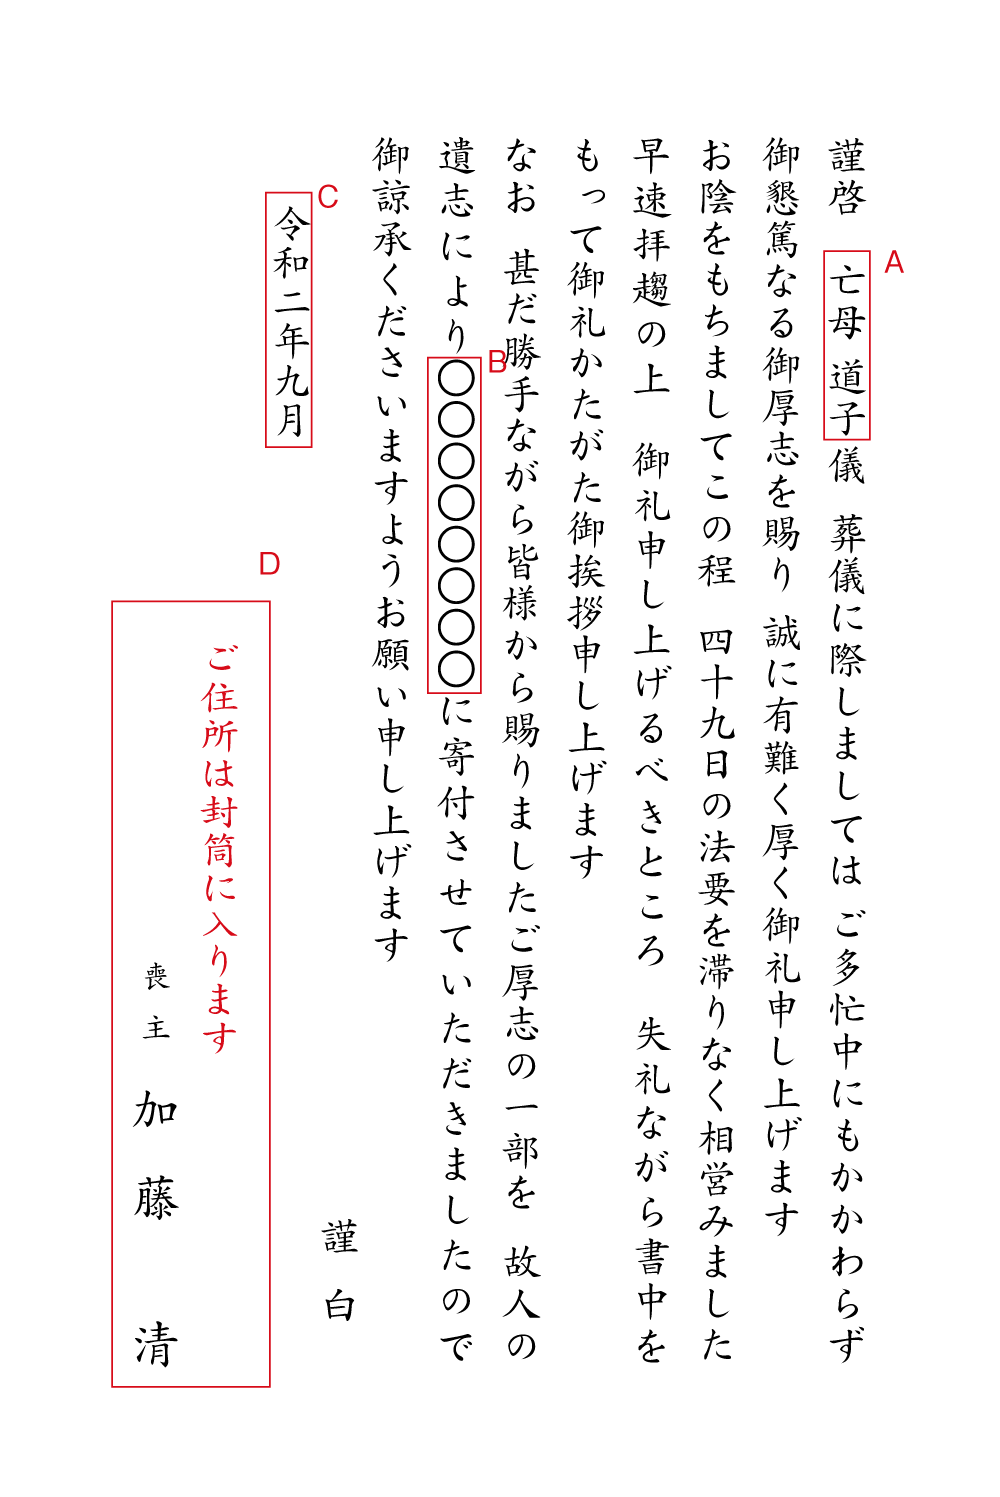 謹啓　亡母 道子儀　葬儀に際しましては ご多忙中にもかかわらず
A
御懇篤なる御厚志を賜り　誠に有難く厚く御礼申し上げます
お陰をもちましてこの程　四十九日の法要を滞りなく相営みました
早速拝趨の上　御礼申し上げるべきところ　失礼ながら書中を
もって御礼かたがた御挨拶申し上げます
なお　甚だ勝手ながら皆様から賜りましたご厚志の一部を　故人の
遺志により〇〇〇〇〇〇〇〇に寄付させていただきましたので
B
御諒承くださいますようお願い申し上げます
謹白
令和二年九月
C
D
ご住所は封筒に入ります
喪主　加藤　清